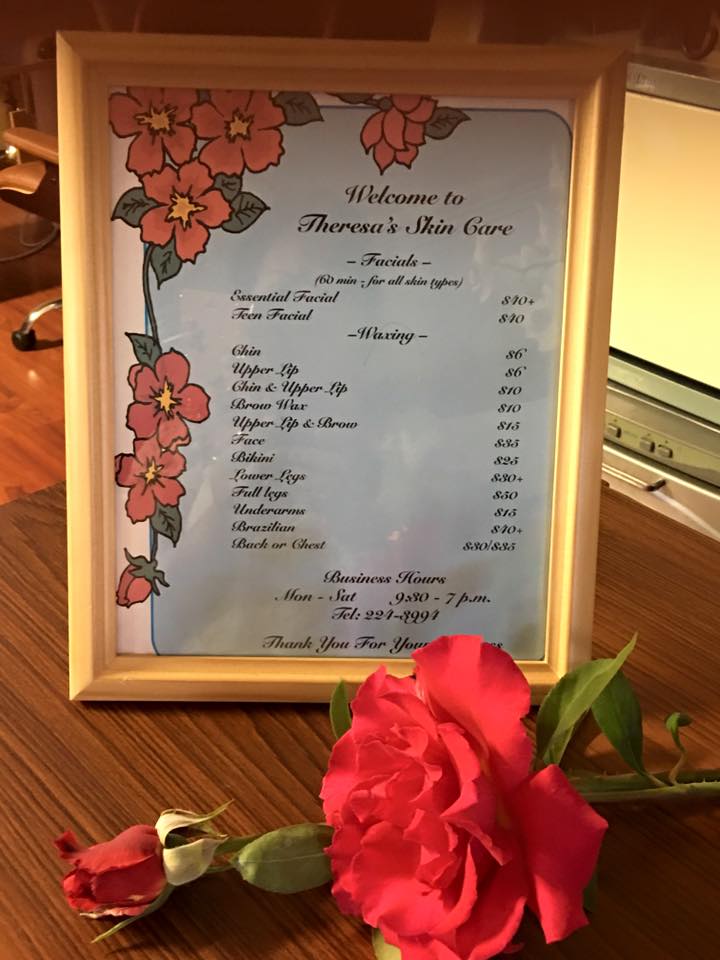 Welcome to
Theresa's Skin Care
– Facials –
(60 min - for all skin types)
Essential Facial $40+
Teen Facial $40
–Waxing –
Chin $6
Upper Lip $6
Chin & Upper Lip $10
Brow Wax $10
Upper Lip & Brow $15
Face $35
Bikini $25
Lower Legs $30+
Full legs $50
Underarms $15
Brazilian $40+
Back or Chest $30/$35
Business Hours
Mon - Sat 9:30 - 7 p.m.
Tel: 224-3994
Thank You For Your